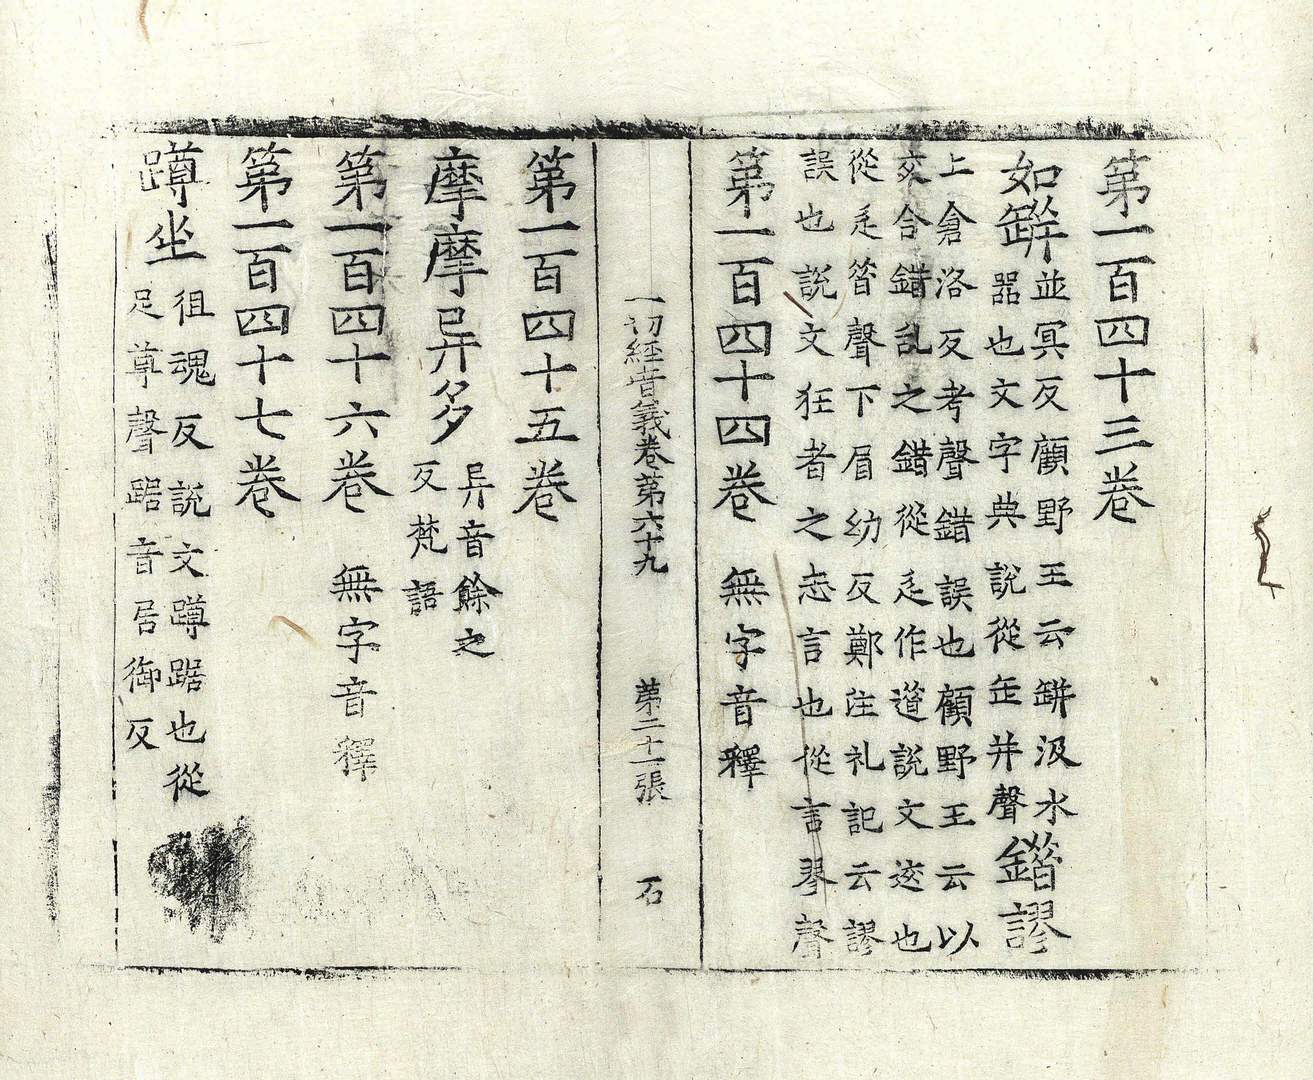 第一百四十三卷
如缾並冥反顧野王云缾汲水
器也文字典說從缶并聲䥘謬
上倉洛反考聲錯誤也顧野王云以
交合錯亂之錯從辵作逪說文逪也
從辵㫺聲下眉幼反鄭注礼記云謬
誤也說文狂者之忘言也從言翏聲
第一百四十四卷 無字音釋
一切經音義卷第六十九 第二十一張 石
第一百四十五卷
摩摩异多异音餘之
反梵語
第一百四十六卷 無字音釋
第一百四十七卷
蹲坐徂魂反說文蹲踞也從
足尊聲踞音居御反